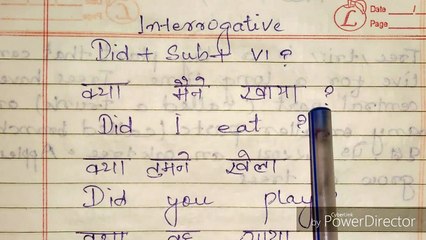 Date
Page
Interrogative
Did + Sub + V1 ?
क्या मैंने खाया ?
Did I eat ?
क्या तुमने खेला
Did you play
क्या वह
CyberLink
by PowerDirector